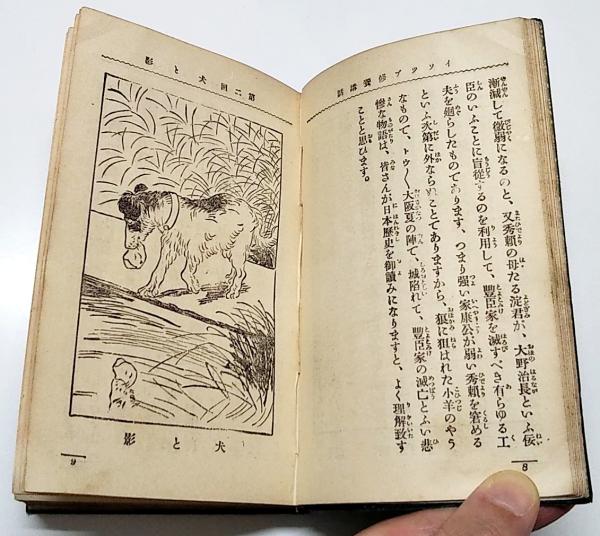 イソツプ修養講話
漸減して微弱になるのと、又秀頼の母たる淀君が、大野治長といふ佞
臣のいふことに盲從するのを利用して、豐臣家を滅すべき有らゆる工
夫を廻らしたものであります、つまり强い家康公が弱い秀頼を窘める
といふ次第に外ならぬことでありますから、狼に狙はれた小羊のやう
なもので、トウ〱大阪夏の陣で、城陷れて、豐臣家の滅亡とふい悲
慘な物語は、皆さんが日本歷史を御讀みになりますと、よく理解致す
ことと思ひます。
8
第二回 犬と影
犬と影
9